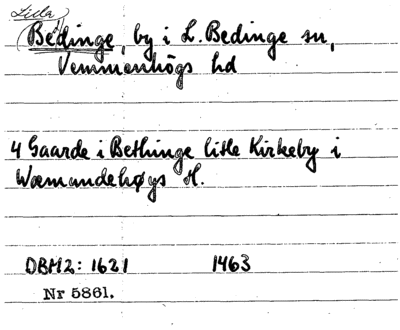 Lilla
Bedinge, by i L. Bedinge sn,
Vemmenhögs hd
4 Gaarde i Bethinge litle Kirkeby i
Wæmundehøgs H.
DBM2: 1621 1463
Nr 5861.